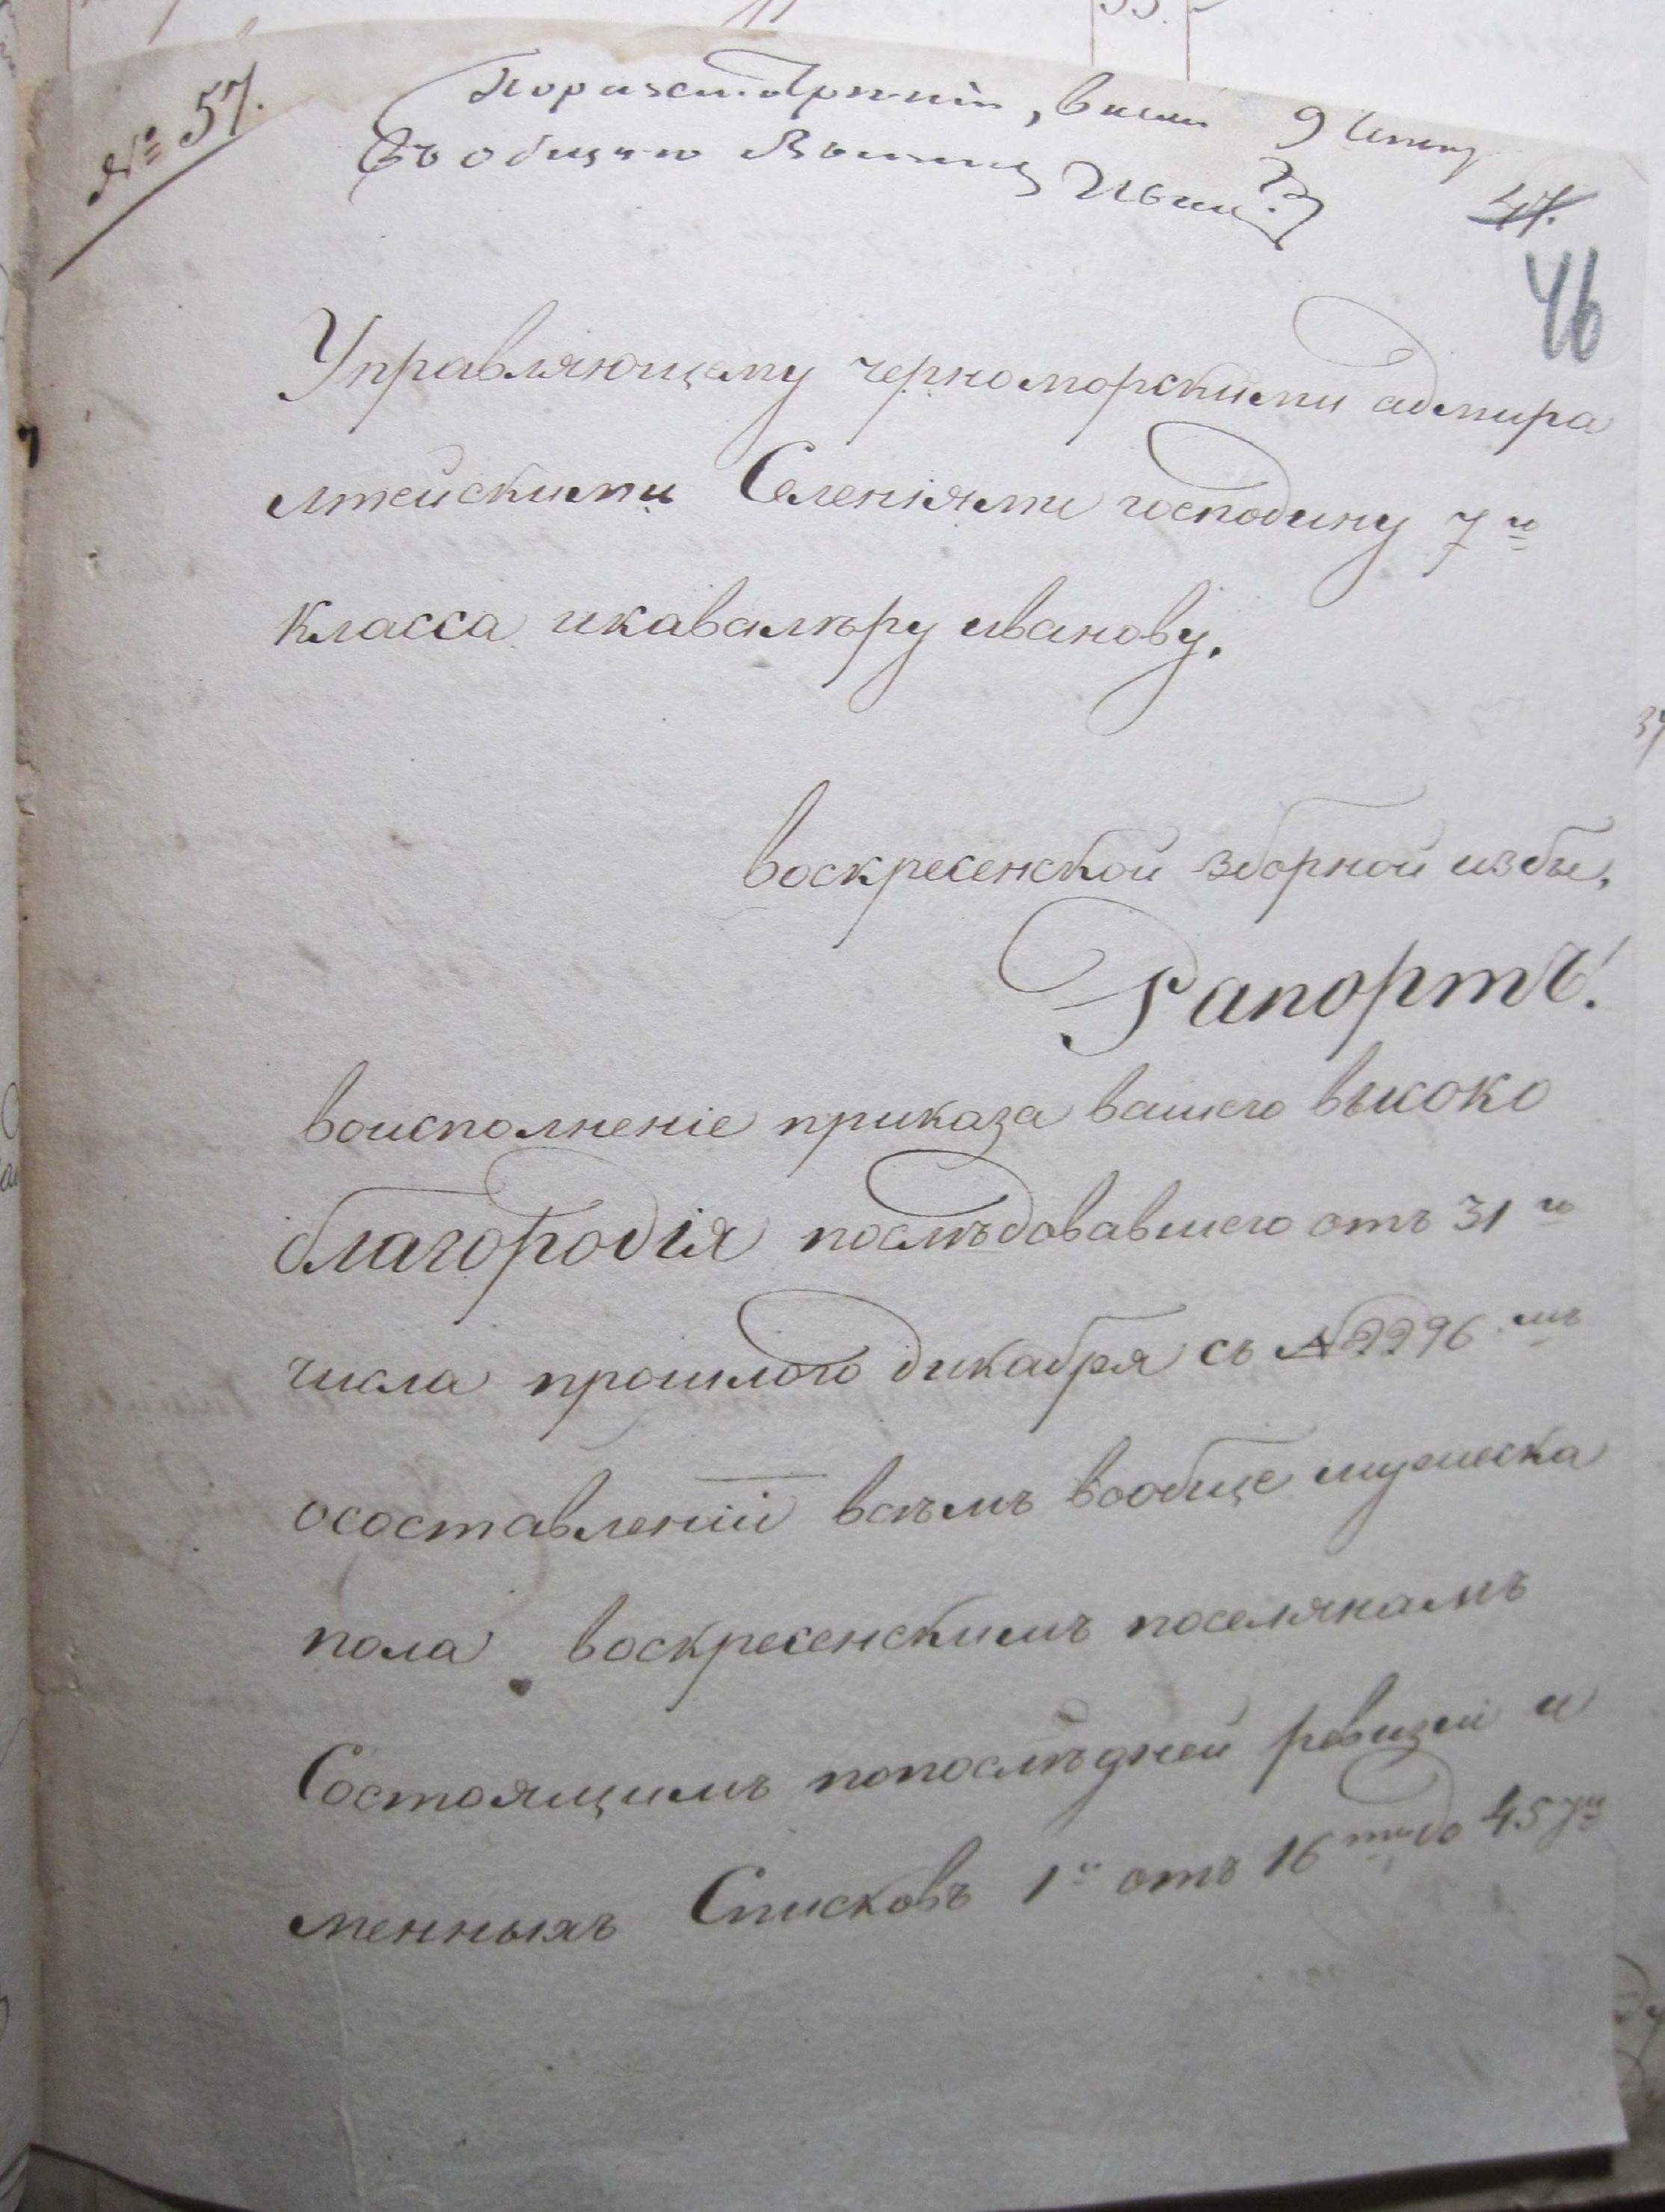 № 57.
По разсмотрении, внести
въ общую
47.
46
Управляющему черноморскими адмира
лтейскими Селениями господину 7 и
класса икавалѣру иванову.
воскресенской зборной избы,
Рапортъ!
воисполнение приказа вашего высоко
благородія послѣдовавшего отъ 31 го
числа прошлого дикабря съ №2296 мъ
осоставленіи всѣмъ вообще мужеска
пола воскресенскимъ поселянамъ
Состоящимъ попослѣдней ревизіи и
менныхъ Списковъ 1 й отъ 16 ти до 45 ти